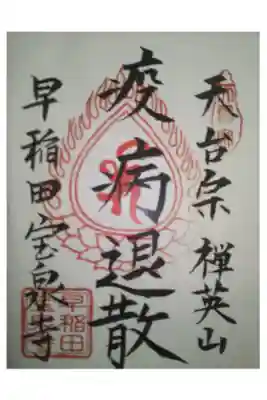 天台宗 禅英山
疫病退散
早稲田宝泉寺
早稲田